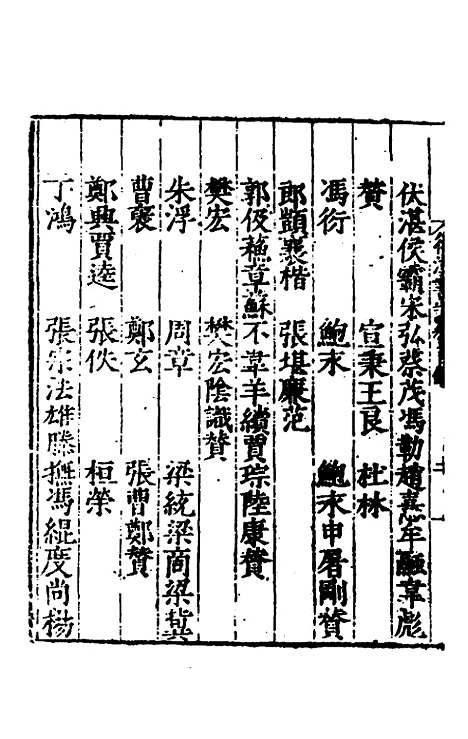 伏湛侯霸宋弘蔡茂馮勤趙憙牟融韋彪
贊　宣秉王良　杜林
馮衍　鮑永　鮑永申屠剛贊
郎顗襄楷　張堪廉范
郭伋孔奮蘇不韋羊續賈琮陸康贊
樊宏　樊宏陰識贊
朱浮　周章　梁統梁商梁冀
曹褒　鄭玄　張曹鄭贊
鄭興賈逵　張佚　桓榮
丁鴻　張宗法雄滕撫馮緄度尚楊